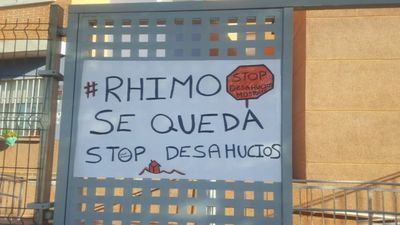 #RHIMO
STOP
DESAHUCIOS
MOSTOLES
SE QUEDA
STOP DESAHUCIOS